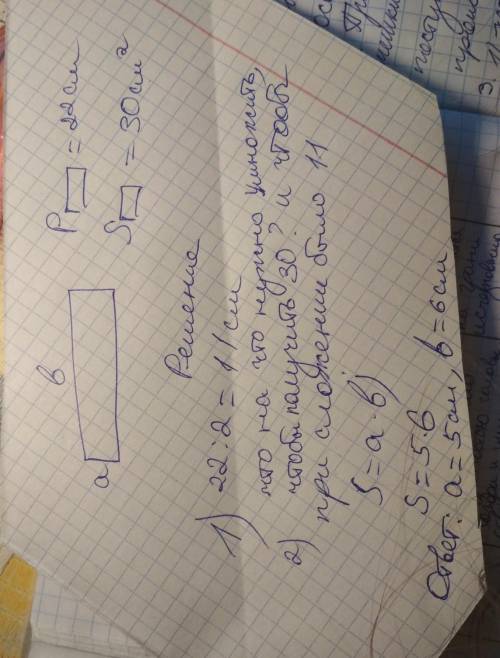 в
а
P▭ = 22 см
S▭ = 30 см²
Решение
1) 22:2 = 11 см
что на что нужно умножить,
2) чтобы получить 30? и чтобы
при сложении было 11
S = a · b)
S = 5 · 6
Ответ: a = 5 см, b = 6 см